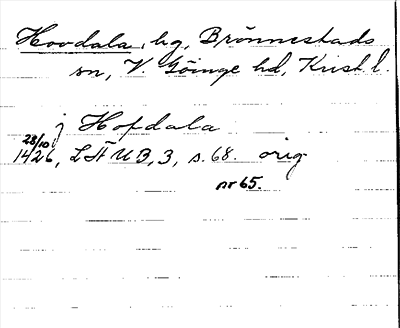 Hovdala, hg, Brönnestads
sn, V. Göinge hd, Krist. l.
j Hofdala
28/10
1426, LÄUB, 3, s. 68. orig
nr 65.